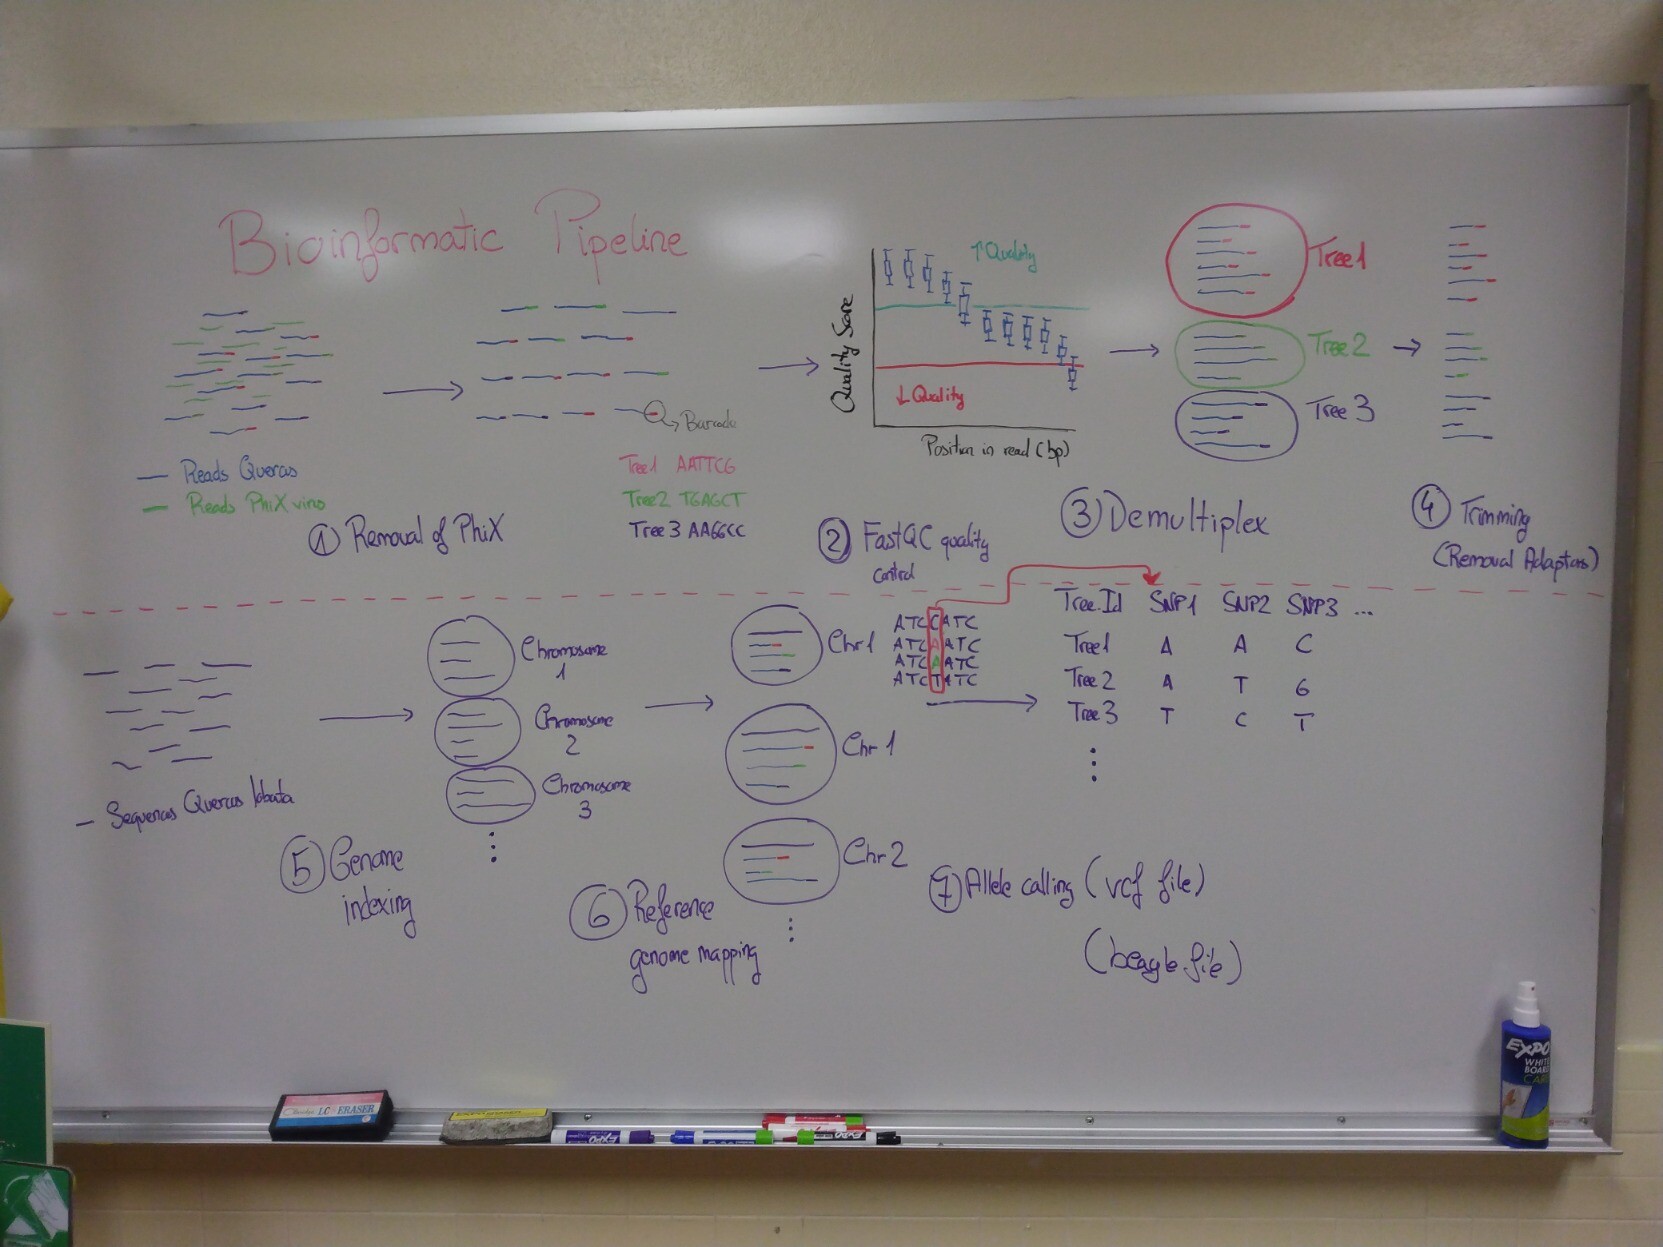 Bioinformatic Pipeline
Reads Quercus
Reads PhiX virus
① Removal of PhiX
Barcode
Tree1 AATTCG
Tree2 TGAGCT
Tree3 AAGGCC
Quality Score
↑Quality
↓Quality
Position in read (bp)
② FastQC quality
control
Tree1
Tree2
Tree3
③ Demultiplex
④ Trimming
(Removal Adaptors)
Sequences Quercus lobata
⑤ Genome
indexing
Chromosome
1
Chromosome
2
Chromosome
3
⋮
⑥ Reference
genome mapping
Chr1
Chr1
Chr2
⋮
ATCCATC
ATCAATC
ATCAATC
ATCTATC
Tree.Id SNP1 SNP2 SNP3 ...
Tree1 A A C
Tree2 A T G
Tree3 T C T
⋮
⑦ Allele calling (vcf file)
(beagle.file)
LC ERASER
EXPO
EXPO
EXPO
WHITE
BOARD
CARE